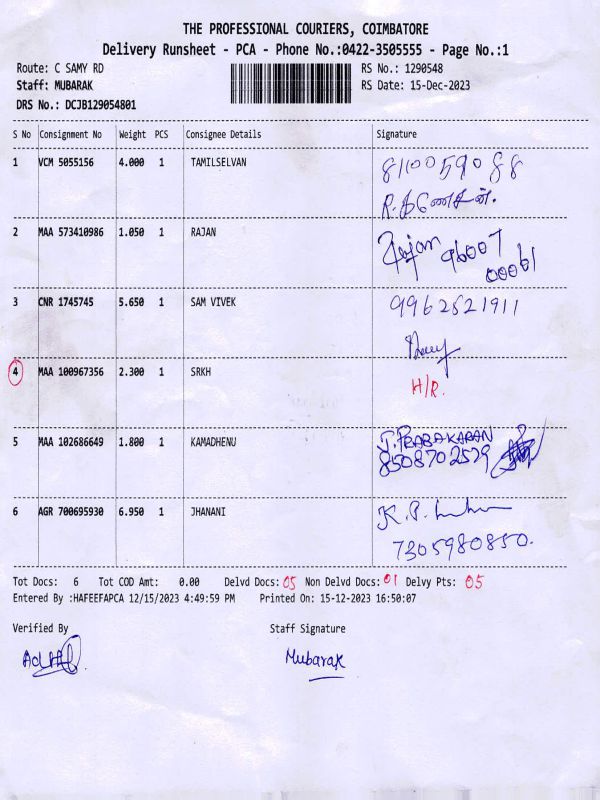 THE PROFESSIONAL COURIERS, COIMBATORE
Delivery Runsheet - PCA - Phone No.:0422-3505555 - Page No.:1
Route: C SAMY RD RS No.: 1290548
Staff: MUBARAK RS Date: 15-Dec-2023
DRS No.: DCJB129054801
S No Consignment No Weight PCS Consignee Details Signature
1 VCM 5055156 4.000 1 TAMILSELVAN 8110059088
R.கணேசன்.
2 MAA 573410986 1.050 1 RAJAN Rajan 96007
00061
3 CNR 1745745 5.650 1 SAM VIVEK 9962521911
4 MAA 100967356 2.300 1 SRKH H/R.
5 MAA 102686649 1.800 1 KAMADHENU J. PRABAKARAN
8508702579
6 AGR 700695930 6.950 1 JHANANI K.P.
7305980850.
Tot Docs: 6 Tot COD Amt: 0.00 Delvd Docs: 05 Non Delvd Docs: 01 Delvy Pts: 05
Entered By :HAFEEFAPCA 12/15/2023 4:49:59 PM Printed On: 15-12-2023 16:50:07
Verified By Staff Signature
Mubarak